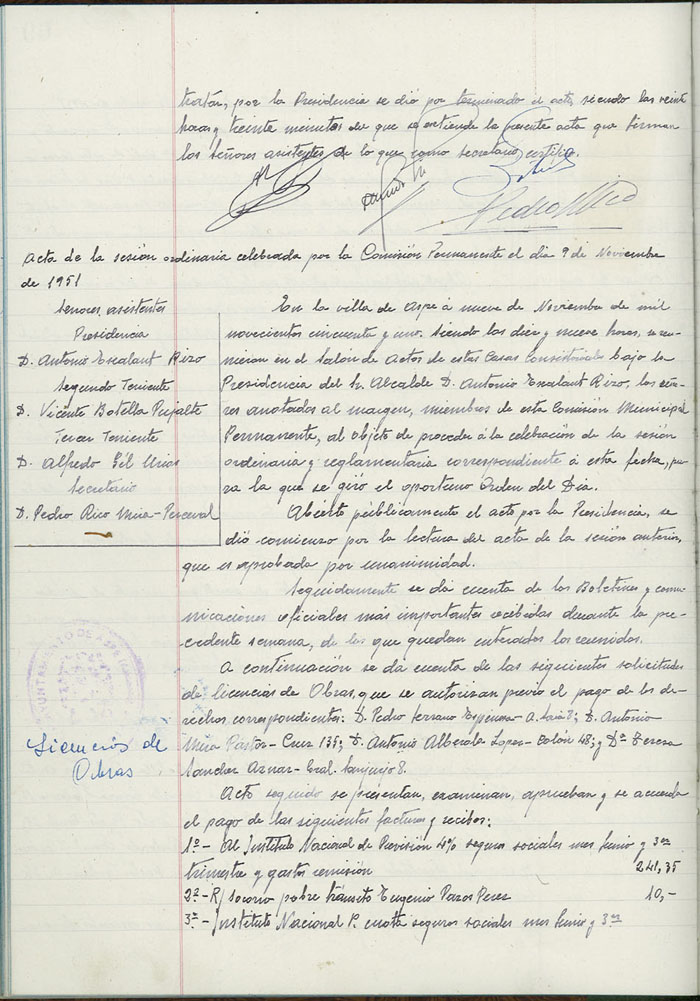 tratar, por la Presidencia se dió por terminado el acto, siendo las veinte
horas y treinta minutos de que se extiende la presente acta que firman
los señores asistentes de lo que como secretario certifico.
Pedro Rico
Acta de la sesión ordinaria celebrada por la Comisión Permanente el dia 9 de Noviembre
de 1951
Señores asistentes
Presidencia
D. Antonio Escalant Rizo
Segundo Teniente
D. Vicente Botella Pujalte
Tercer Teniente
D. Alfredo Gil Urios
Secretario
D. Pedro Rico Mira-Perceval
En la villa de Aspe á nueve de Noviembre de mil
novecientos cincuenta y uno. Siendo las diez y nueve horas, se reu-
nieron en el Salon de Actos de estas Casas Consistoriales bajo la
Presidencia del Sr. Alcalde D. Antonio Escalant Rizo, los seño-
res anotados al margen, miembros de esta Comisión Municipal
Permanente, al objeto de proceder á la celebración de la sesión
ordinaria y reglamentaria correspondiente á esta fecha, pa-
ra la que se giró el oportuno Orden del Dia.
Abierto públicamente el acto por la Presidencia, se
dió comienzo por la lectura del acta de la sesión anterior,
que es aprobada por unanimidad.
Seguidamente se da cuenta de los Boletines y comu-
nicaciones oficiales más importantes recibidas durante la pre-
cedente semana, de los que quedan enterados los reunidos.
Licencias de
Obras
A continuación se da cuenta de las siguientes solicitudes
de licencias de Obras, que se autorizan previo el pago de los de-
rechos correspondientes: D. Pedro Serrano 8; D. Antonio
Mira Pastor- Cruz 135; D. Antonio Alberola Lopez- Colón 48; y Dª Teresa
Sanchez Aznar- Gral. Sanjurjo 8.
Acto seguido se presentan, examinan, aprueban y se acuerda
el pago de las siguientes facturas y recibos:
1º- Al Instituto Nacional de Previsión 4% seguros sociales mes Junio y 3er
trimestre y gastos remisión 241,35
2º- R/ socorro pobre tránsito Eugenio Pazos Perez 10,-
3º- Instituto Nacional P. cuota seguros sociales mes Junio y 3er